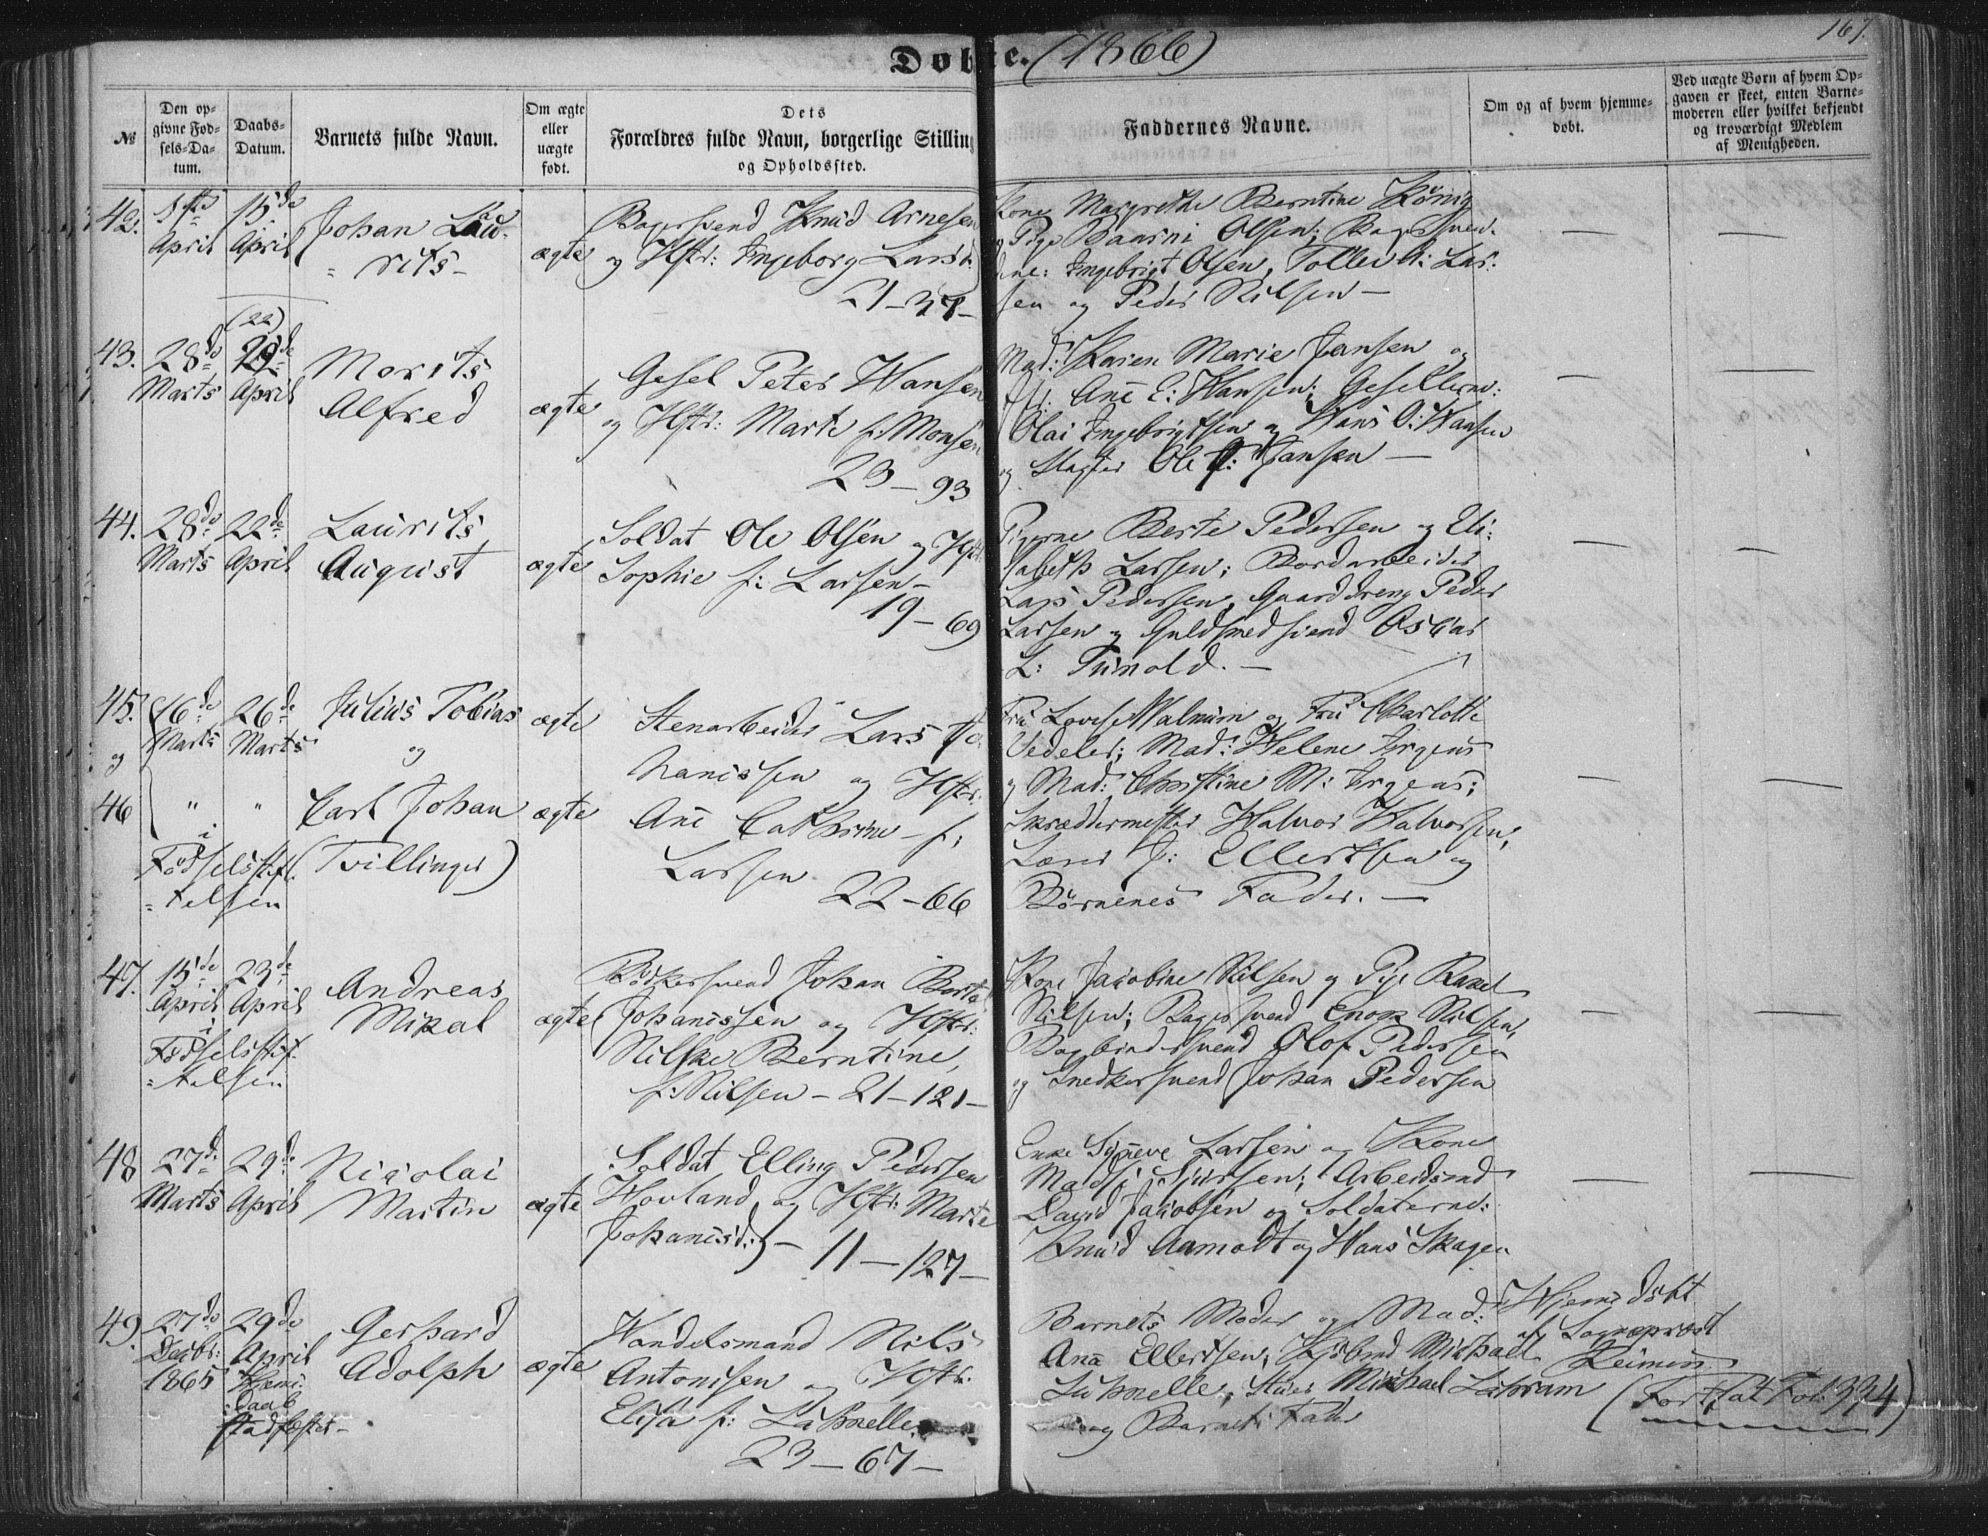 167.
Døbte. (1866)
№
Den op-
givne Fød-
sels-Da-
tum.
Daabs-
Datum.
Barnets fulde Navn.
Om ægte
eller
uægte
født.
Dets
Forældres fulde Navn, borgerlige Stilling
og Opholdssted.
Faddernes Navne.
Om og af hvem hjemme-
døbt.
Ved uægte Børn af hvem Op-
gaven er skeet, enten Barne-
moderen eller hvilket bekjendt
og troværdigt Medlem
af Menigheden.
42. April 15de April
Johan Lau-
= rits -
ægte
Bagersvend Knud Arnesen
og Hstr: Ingeborg Larsd:
21 - 37 -
Kone Margrethe Berntine König
og Pige Olsen; Bagersvend-
ne: Ingebrigt Olsen, Tollev A: Lar:
sen og Peder Nilsen —
43. 28de Marts (22) 29de April
Morits
Alfred
ægte
Gesel Peter Hansen
og Hstr: Marte f: Monsen
23 - 93
Mad: Karen Marie Jansen og
Ane E: Hansen; Gesellerne:
Olai Ingebrigtsen og Hans O: Hansen
og Slagter Ole Jansen —
44. 28de Marts 22de April
Laurits
August
ægte
Soldat Ole Olsen og Hstr:
Sophie f: Larsen -
19 - 69
Pigerne Berte Pedersen og Eli:
sabeth Larsen; Bordarbeider
Lars Pedersen, Gaarddreng Peder
Larsen og Guldsmedsvend Oscar
L: Tunold. —
45. 16de Marts 26de Marts
Julius Tobias
ægte
og
46 " "
Carl Johan
ægte
i
Fødselsstif-
= telsen
(Tvillinger)
Stenarbeider Lars Jo-
hanessen og Hstr:
Ane Cathrine f:
Larsen
22 - 66
Fru Lovise Walnum og Fru Charlotte
Vedeler; Mad: Helene Irgens
og Mad: Christine M: Irgens;
Skræddermester Halvor Halvorsen,
Lærer J: Ellertsen og
Børnenes Fader. —
47. 15de April 23de April
i
Fødselsstif-
= telsen
Andreas
Mikal
ægte
Bødkersvend Johan
Johanessen og Hstr:
Nilske Berntine,
f: Nilsen - 21 - 121 -
Kone Jacobine Nilsen og Pige Rakel
Nilsen; Bagersvend Enok Nilsen,
Bogbindersvend Olof Pedersen
og Snedkersvend Johan Pedersen
48 27de Marts 29de April
Nicolai
Martin
ægte
Soldat Elling Pedersen
Hovland og Hstr: Marte
Johanesd: - 11 - 127 -
Enke Synneve Larsen og Kone
Arbeidsmd
David Jacobsen og Soldaterne:
Knud Aamodt og Hans Skagen
49. 27de Decbr: 1865 29de April
Hjemme
Daab
stadfæstet -
Gerhard
Adolph
ægte
Handelsmand Nils
Antonisen og Hstr:
Elisa f: Lühnelle
23 - 67 -
Barnets Moder og Mad:
Ane Ellertsen; Michael
Lühnelle, Michael Lahrum
og Barnets Fader
Hjemmedøbt
af Sogneprest
Reimers
(Fortsat Fol: 334)